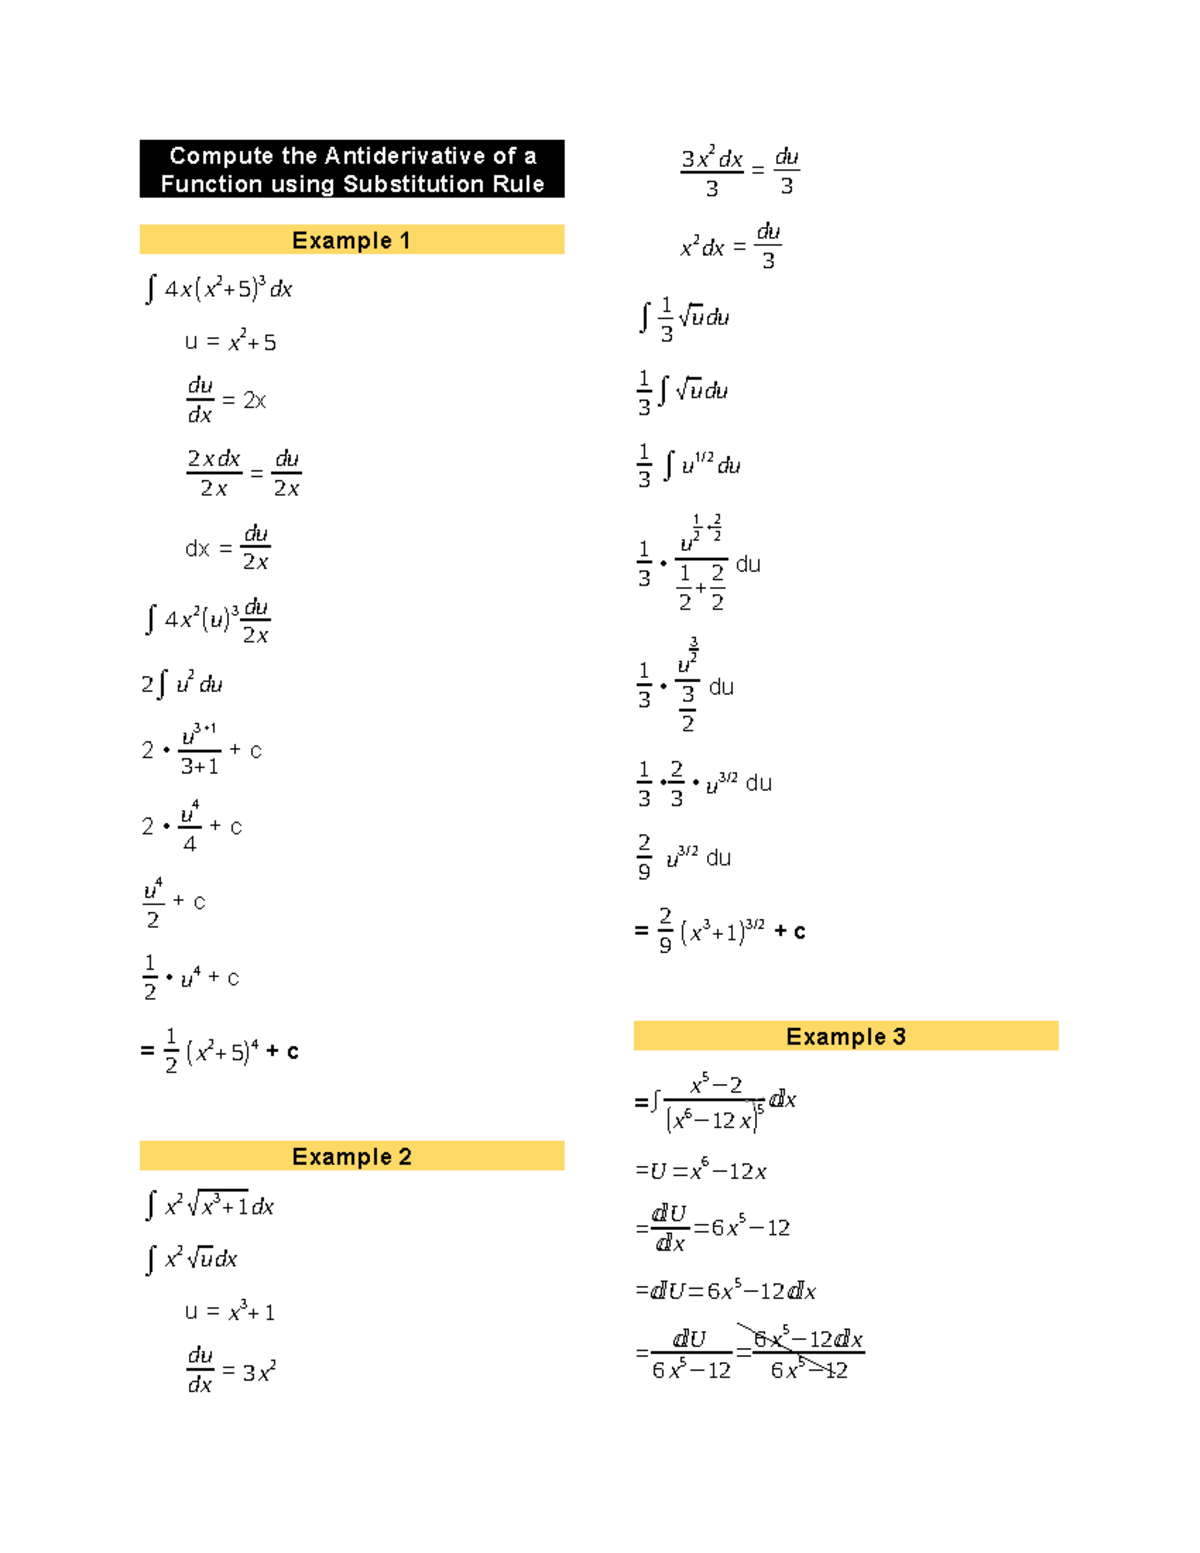 Compute the Antiderivative of a
Function using Substitution Rule
Example 1
∫ 4x(x²+5)³ dx
u = x²+5
du/dx = 2x
2x dx/2x = du/2x
dx = du/2x
∫ 4x²(u)³ du/2x
2∫ u² du
2 • u³⁺¹/3+1 + c
2 • u⁴/4 + c
u⁴/2 + c
1/2 • u⁴ + c
= 1/2 (x²+5)⁴ + c
Example 2
∫ x²√(x³+1) dx
∫ x²√u dx
u = x³+1
du/dx = 3x²
3x² dx/3 = du/3
x² dx = du/3
∫ 1/3 √u du
1/3 ∫ √u du
1/3 ∫ u^1/2 du
1/3 • u^(1/2+2/2)/(1/2+2/2) du
1/3 • u^(3/2)/(3/2) du
1/3 • 2/3 • u^3/2 du
2/9 u^3/2 du
= 2/9 (x³+1)^3/2 + c
Example 3
=∫ x⁵−2/(x⁶−12x)⁵ ⅆx
=U=x⁶−12x
=ⅆU/ⅆx=6x⁵−12
=ⅆU=6x⁵−12ⅆx
=ⅆU/6x⁵−12=6x⁵−12ⅆx/6x⁵−12